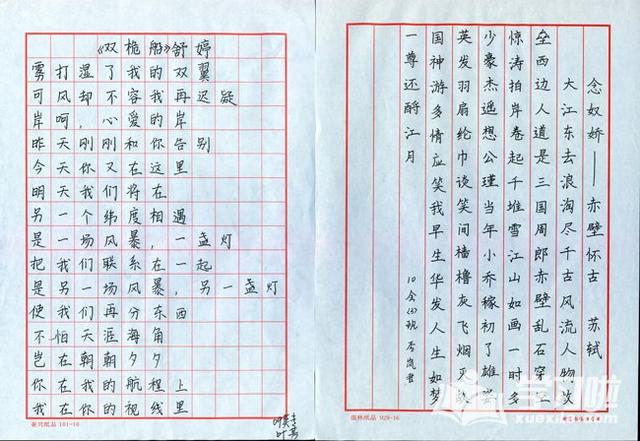 《双桅船》舒婷
雾打湿了我的双翼
可风却不容我再迟疑
岸呵，心爱的岸
昨天刚刚和你告别
今天你又在这里
明天我们将在
另一个纬度相遇
是一场风暴，一盏灯
把我们联系在一起
是另一场风暴，另一盏灯
使我们再分东西
不怕天涯海角
岂在朝朝夕夕
你在我的航程上
我在你的视线里
101-16
念奴娇——赤壁怀古 苏轼
大江东去浪淘尽千古风流人物故
垒西边人道是三国周郎赤壁乱石穿空
惊涛拍岸卷起千堆雪江山如画一时多
少豪杰遥想公瑾当年小乔稼初了雄姿
英发羽扇纶巾谈笑间樯橹灰飞烟灭故
国神游多情应笑我早生华发人生如梦
一尊还酹江月
929-16
学习啦
xuexila